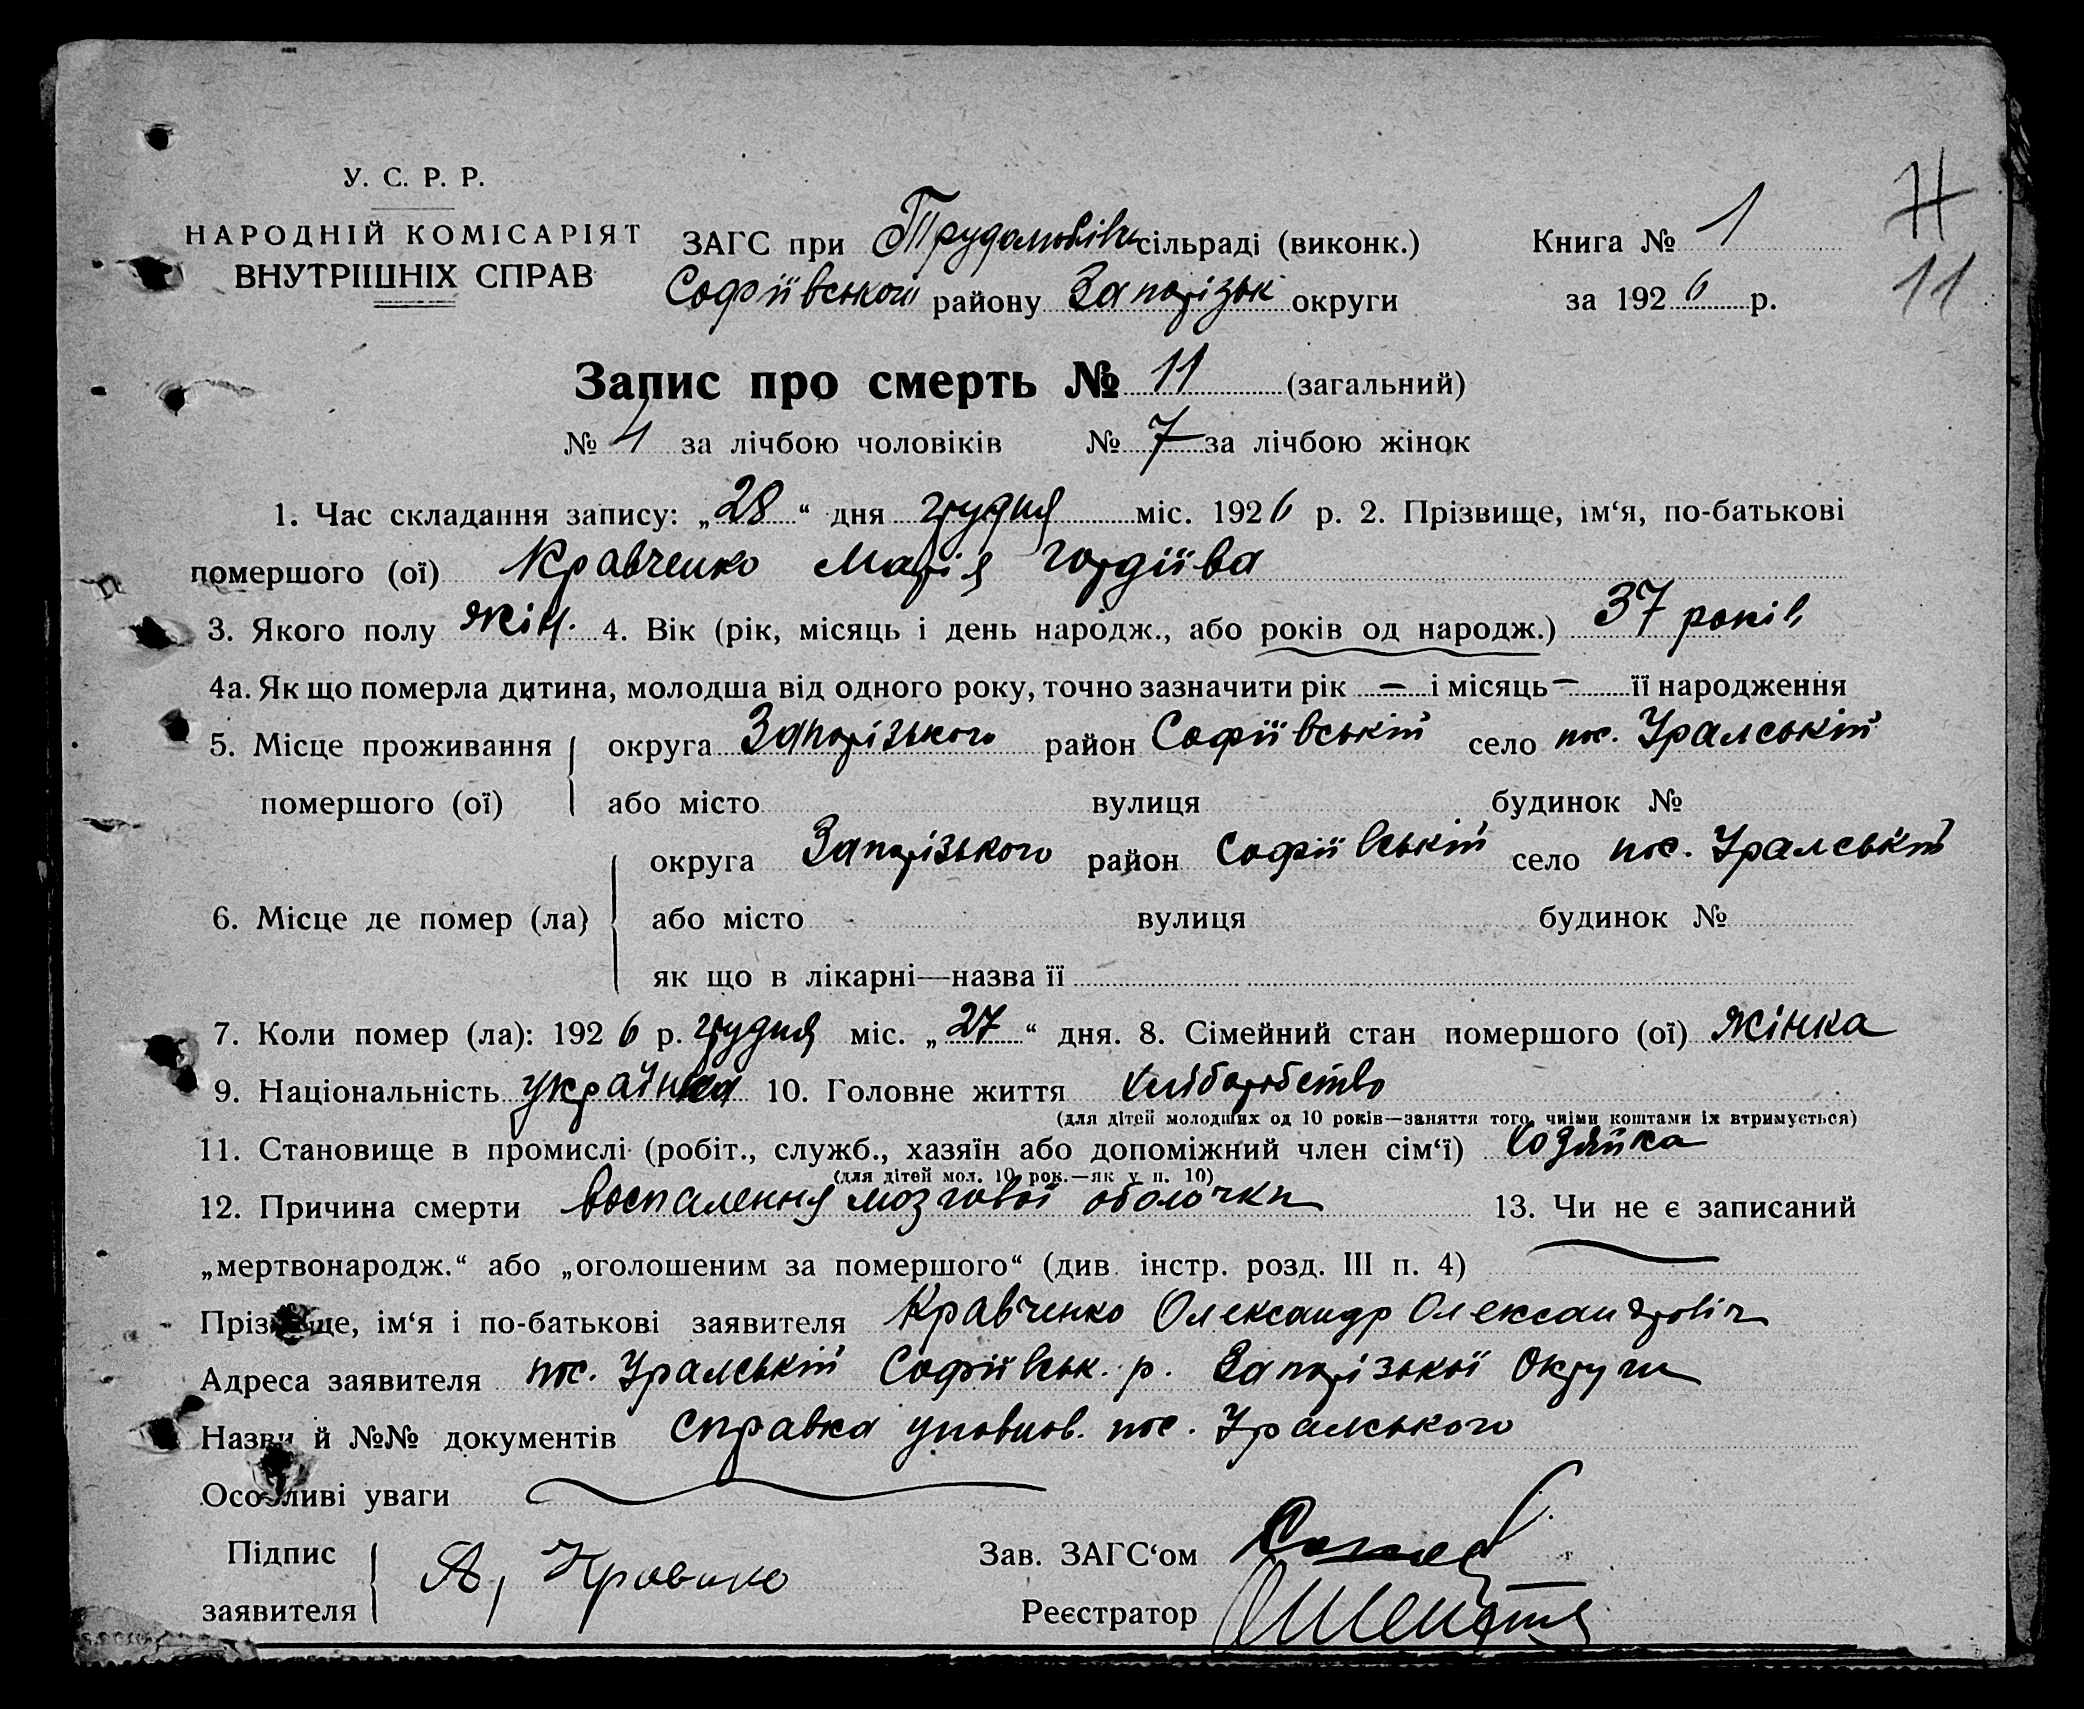 У. С. Р. Р.
НАРОДНІЙ КОМІСАРІЯТ
ВНУТРІШНІХ СПРАВ
ЗАГС при Трудолюбівк сільраді (виконк.)
Софіївського району Запорізьк округи
Книга № 1
за 1926 р.
11
11
Запис про смерть № 11 (загальний)
№ 4 за лічбою чоловіків № 7 за лічбою жінок
1. Час складання запису: „28“ дня грудня міс. 1926 р. 2. Прізвище, ім‘я, по-батькові
помершого (ої) Кравченко Марія Гордіїва
3. Якого полу жін. 4. Вік (рік, місяць і день народж., або років од народж.) 37 років
4а. Як що померла дитина, молодша від одного року, точно зазначити рік — і місяць — її народження
5. Місце проживання помершого (ої) округа Запорізького район Софіївській село пос. Уралській
або місто вулиця будинок №
6. Місце де помер (ла) округа Запорізького район Софіївській село пос. Уралській
або місто вулиця будинок №
як що в лікарні—назва її
7. Коли помер (ла): 1926 р. грудня міс. „27“ дня. 8. Сімейний стан помершого (ої) жінка
9. Національність українка 10. Головне життя хліборобство
(для дітей молодших од 10 років—заняття того, чиїми коштами їх втримується)
11. Становище в промислі (робіт., служб., хазяїн або допоміжний член сім‘ї) хозяйка
(для дітей мол. 10 рок.—як у п. 10)
12. Причина смерти воспалення мозгової оболочки 13. Чи не є записаний
„мертвонародж.“ або „оголошеним за помершого“ (див. інстр. розд. III п. 4)
Прізвище, ім‘я і по-батькові заявителя Кравченко Олександр Олександрович
Адреса заявителя пос. Уралській Софіївськ. р. Запорізької Округи
Назви й №№ документів справка уповнов. пос. Уралського
Особливі уваги
Підпис заявителя А, Кравчнко
Зав. ЗАГС‘ом
Реєстратор